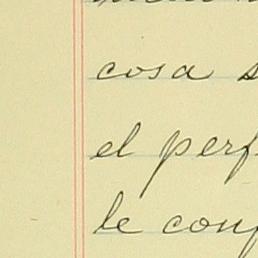 cosa
el perf
le conf